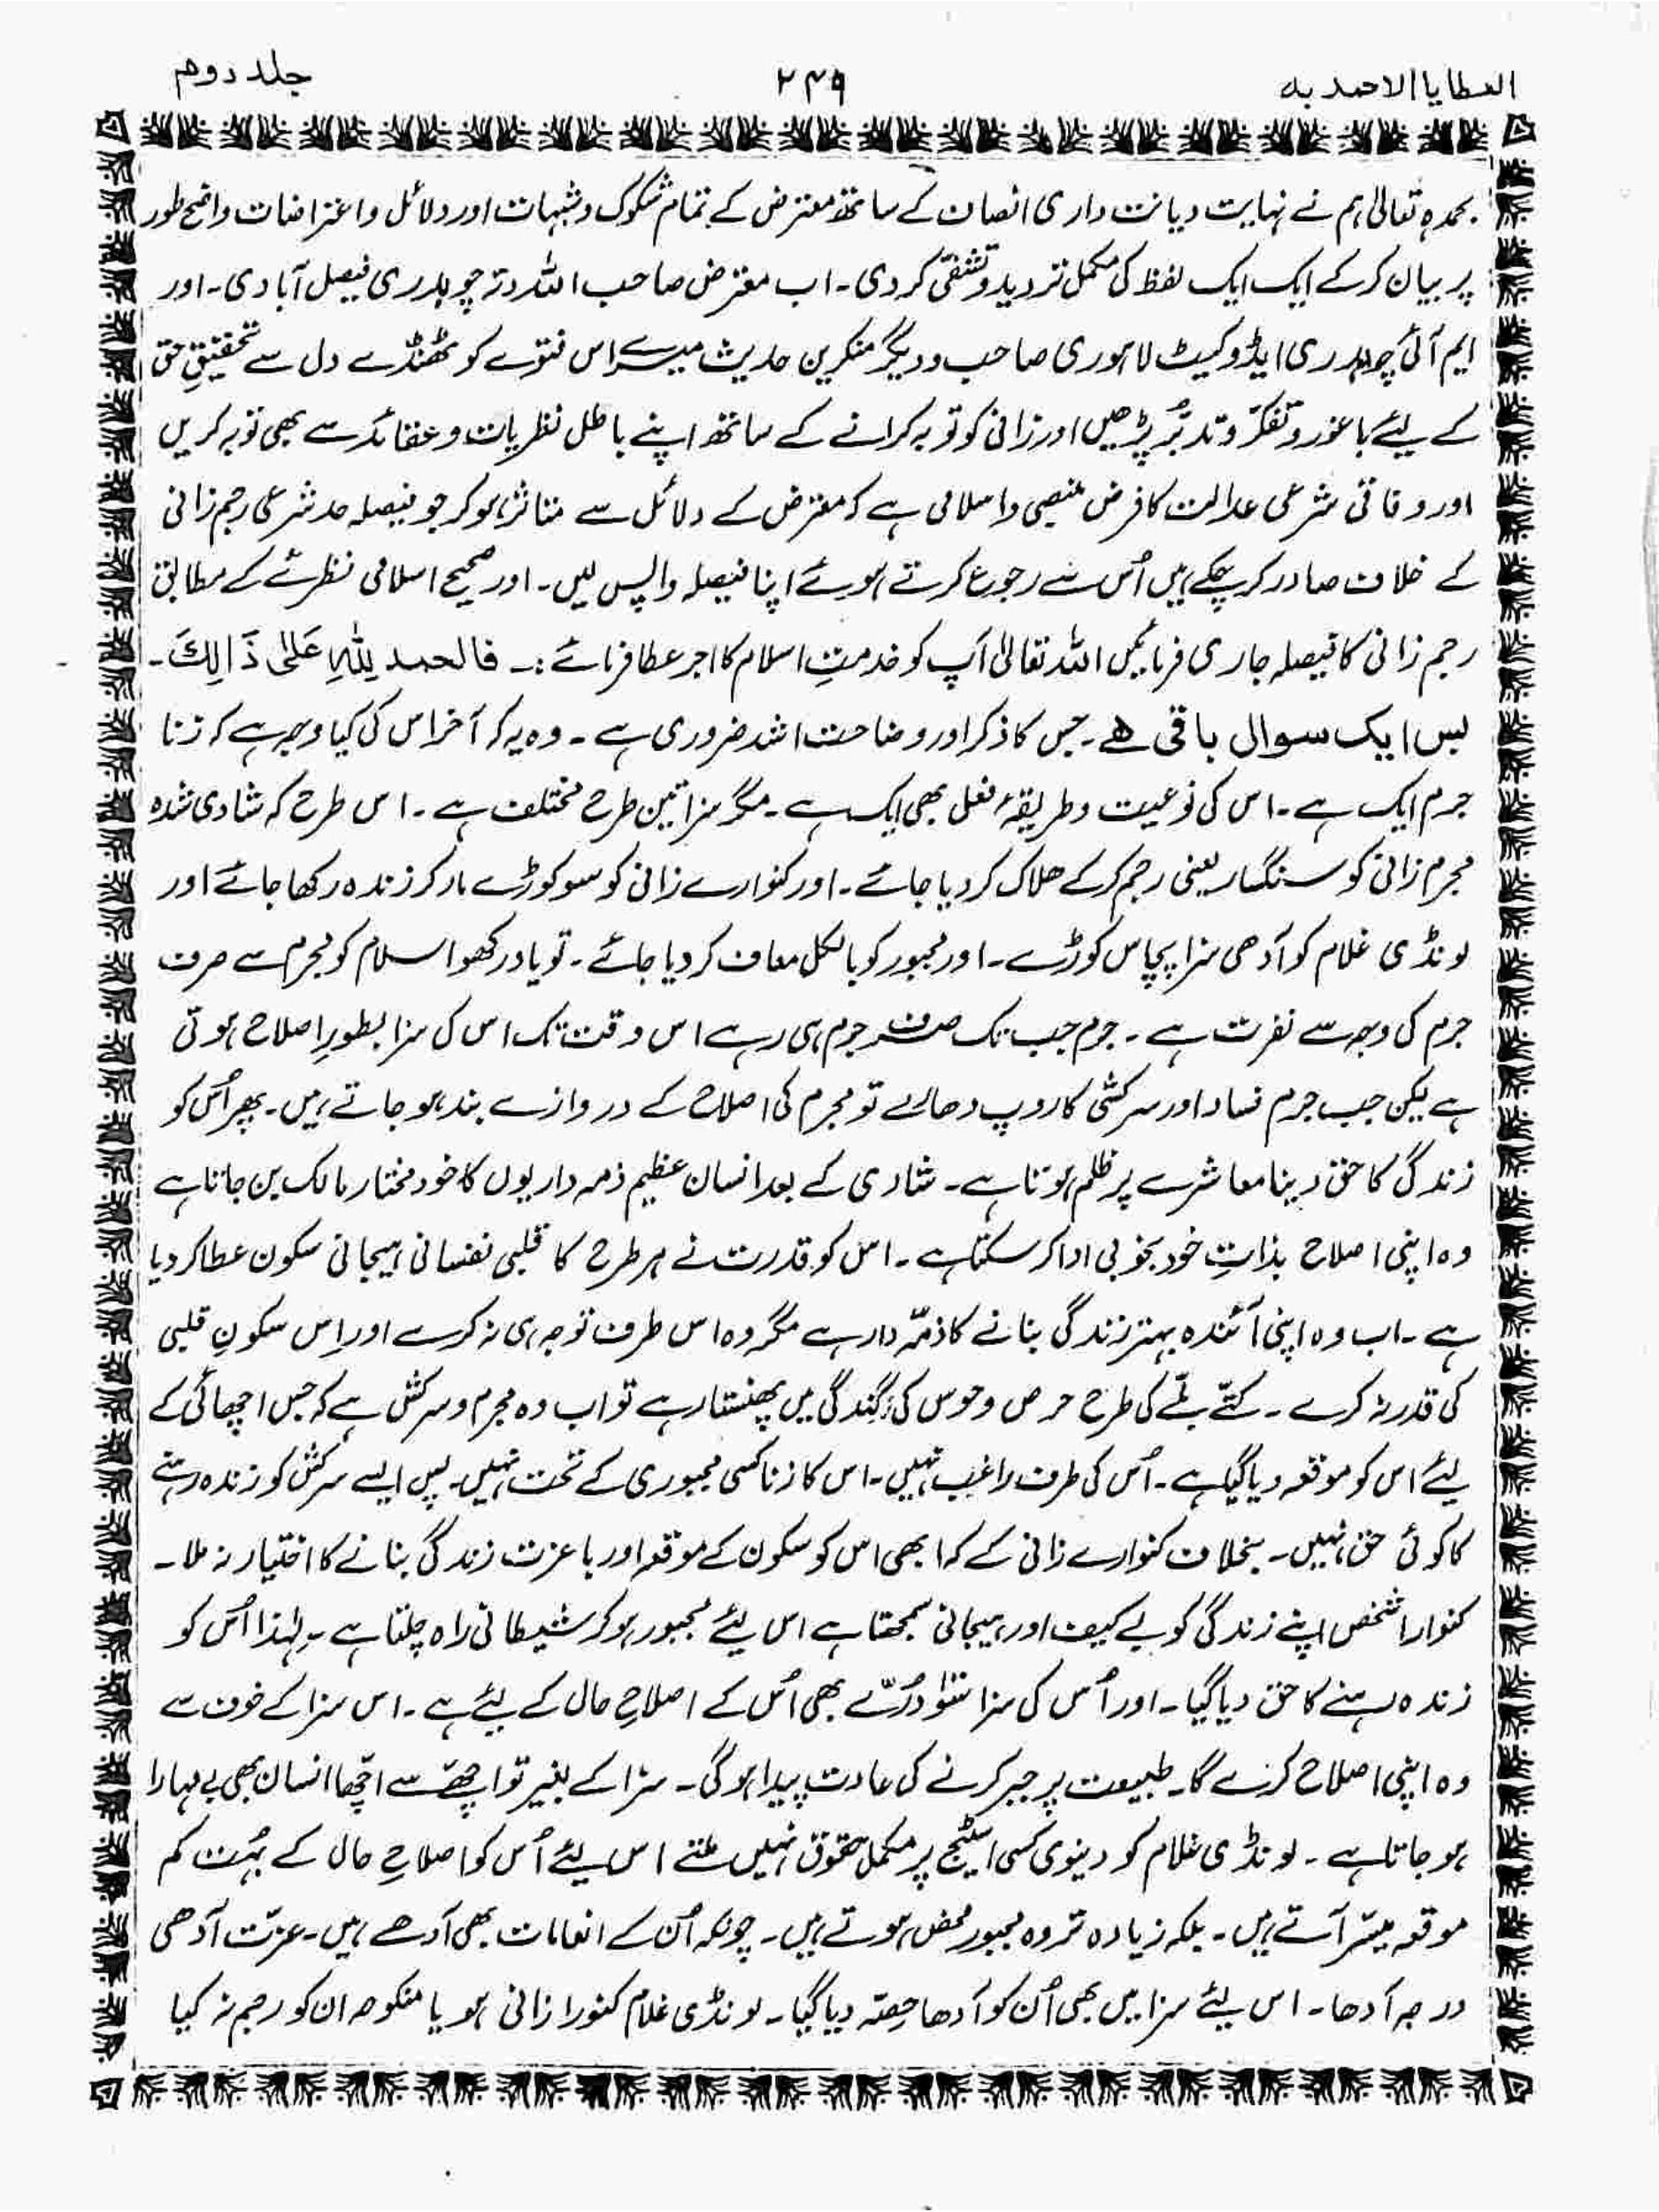 العطایا الاحمدیہ ۲۴۹ جلد دوم
بحمدہٖ تعالیٰ ہم نے نہایت دیانت داری انصاف کے ساتھ معترض کے تمام شکوک و شبہات اور دلائل و اعتراضات واضح طور
پر بیان کر کے ایک ایک لفظ کی مکمل تردید و تشفّی کر دی۔ اب معترض صاحب اللہ دتہ چوہدری فیصل آبادی۔ اور
ایم آئی چوہدری ایڈوکیٹ لاہوری صاحب و دیگر منکرین حدیث میرے اس فتوے کو ٹھنڈے دل سے تحقیقِ حق
کے لیئے باغور و تفکّر و تدبُّر پڑھیں اور زانی کو توبہ کرانے کے ساتھ اپنے باطل نظریات و عقائد سے بھی توبہ کریں
اور وفاقی شرعی عدالت کا فرض منصبی و اسلامی ہے کہ معترض کے دلائل سے متاثر ہو کر جو فیصلہ حد شرعی رجم زانی
کے خلاف صادر کر چکے ہیں اُس سے رجوع کرتے ہوئے اپنا فیصلہ واپس لیں۔ اور صحیح اسلامی نظریئے کے مطابق
رجم زانی کا فیصلہ جاری فرمائیں اللہ تعالیٰ آپ کو خدمتِ اسلام کا اجر عطا فرمائے :۔ فالحمد لِلّٰہِ عَلیٰ ذَالِکَ۔
بس ایک سوال باقی ہے۔ جس کا ذکر اور وضاحت اشد ضروری ہے۔ وہ یہ کہ آخر اس کی کیا وجہ ہے کہ زنا
جرم ایک ہے۔ اس کی نوعیت و طریقۂ فعل بھی ایک ہے۔ مگر سزا تین طرح مختلف ہے۔ اس طرح کہ شادی شدہ
مجرم زانی کو سنگسار یعنی رجم کر کے ھلاک کر دیا جائے۔ اور کنوارے زانی کو سو کوڑے مار کر زندہ رکھا جائے اور
لونڈی غلام کو آدھی سزا پچاس کوڑے۔ اور مجبور کو بالکل معاف کر دیا جائے۔ تو یاد رکھو اسلام کو مجرم سے صرف
جرم کی وجہ سے نفرت ہے۔ جرم جب تک صرف جرم ہی رہے اس وقت تک اس کی سزا بطورِ اصلاح ہوتی
ہے لیکن جب جرم فساد اور سرکشی کا روپ دھارے تو مجرم کی اصلاح کے دروازے بند ہو جاتے ہیں۔ پھر اُس کو
زندگی کا حق دینا معاشرے پر ظلم ہوتا ہے۔ شادی کے بعد انسان عظیم ذمہ داریوں کا خود مختار مالک بن جاتا ہے
وہ اپنی اصلاح بذاتِ خود بخوبی ادا کر سکتا ہے۔ اس کو قدرت نے ہر طرح کا قلبی نفسانی ہیجانی سکون عطا کر دیا
ہے۔ اب وہ اپنی آئندہ بہتر زندگی بنانے کا ذمّہ دار ہے مگر وہ اس طرف توجہ ہی نہ کرے اور اِس سکونِ قلبی
کی قدر نہ کرے۔ کتّے بلّے کی طرح حرص و حوس کی گندگی میں پھنستا رہے تو اب وہ مجرم و سرکش ہے کہ جس اچھائی کے
لیئے اس کو موقعہ دیا گیا ہے۔ اُس کی طرف راغب نہیں۔ اس کا زنا کسی مجبوری کے تحت نہیں۔ پس ایسے سرکش کو زندہ رہنے
کا کوئی حق نہیں۔ بخلاف کنوارے زانی کے کہ ابھی اس کو سکون کے موقعہ اور باعزت زندگی بنانے کا اختیار نہ ملا۔
کنوارا شخص اپنے زندگی کو بے کیف اور ہیجانی سمجھتا ہے اس لیئے مجبور ہو کر شیطانی راہ چلتا ہے۔ لہٰذا اُس کو
زندہ رہنے کا حق دیا گیا۔ اور اُس کی سزا سَنّوْ دُرّے بھی اُس کے اصلاحِ حال کے لیئے ہے۔ اس سزا کے خوف سے
وہ اپنی اصلاح کرے گا۔ طبیعت پر جبر کرنے کی عادت پیدا ہو گی۔ سزا کے بغیر تو اچھّے سے اچّھا انسان بھی بے مہارا
ہو جاتا ہے۔ لونڈی غلام کو دینوی کسی اسٹیج پر مکمل حقوق نہیں ملتے اس لیئے اُس کو اصلاحِ حال کے بہُت کم
موقعہ میسّر آتے ہیں۔ بلکہ زیادہ تر وہ مجبور محض ہوتے ہیں۔ چونکہ اُن کے انعامات بھی آدھے ہیں۔ عزّت آدھی
درجہ آدھا۔ اس لیئے سزا میں بھی اُن کو آدھا حصّہ دیا گیا۔ لونڈی غلام کنورا زانی ہو یا منکوحہ ان کو رجم نہ کیا